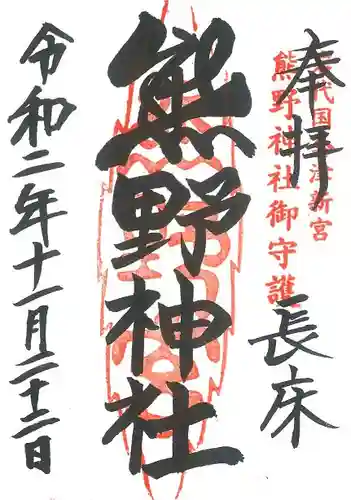 奉拝
長床
熊野神社御守護
熊野神社
令和二年十一月二十二日